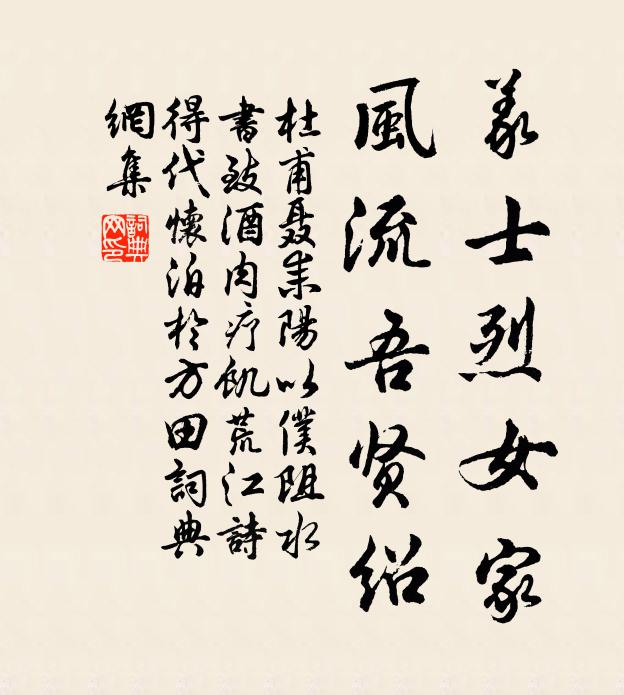 義士烈女家
風流吾贤紹
杜甫聂耒陽以僕阻水
書致酒肉疗飢荒江詩
得代懷泊於方田詞典
網集
詞典
网印